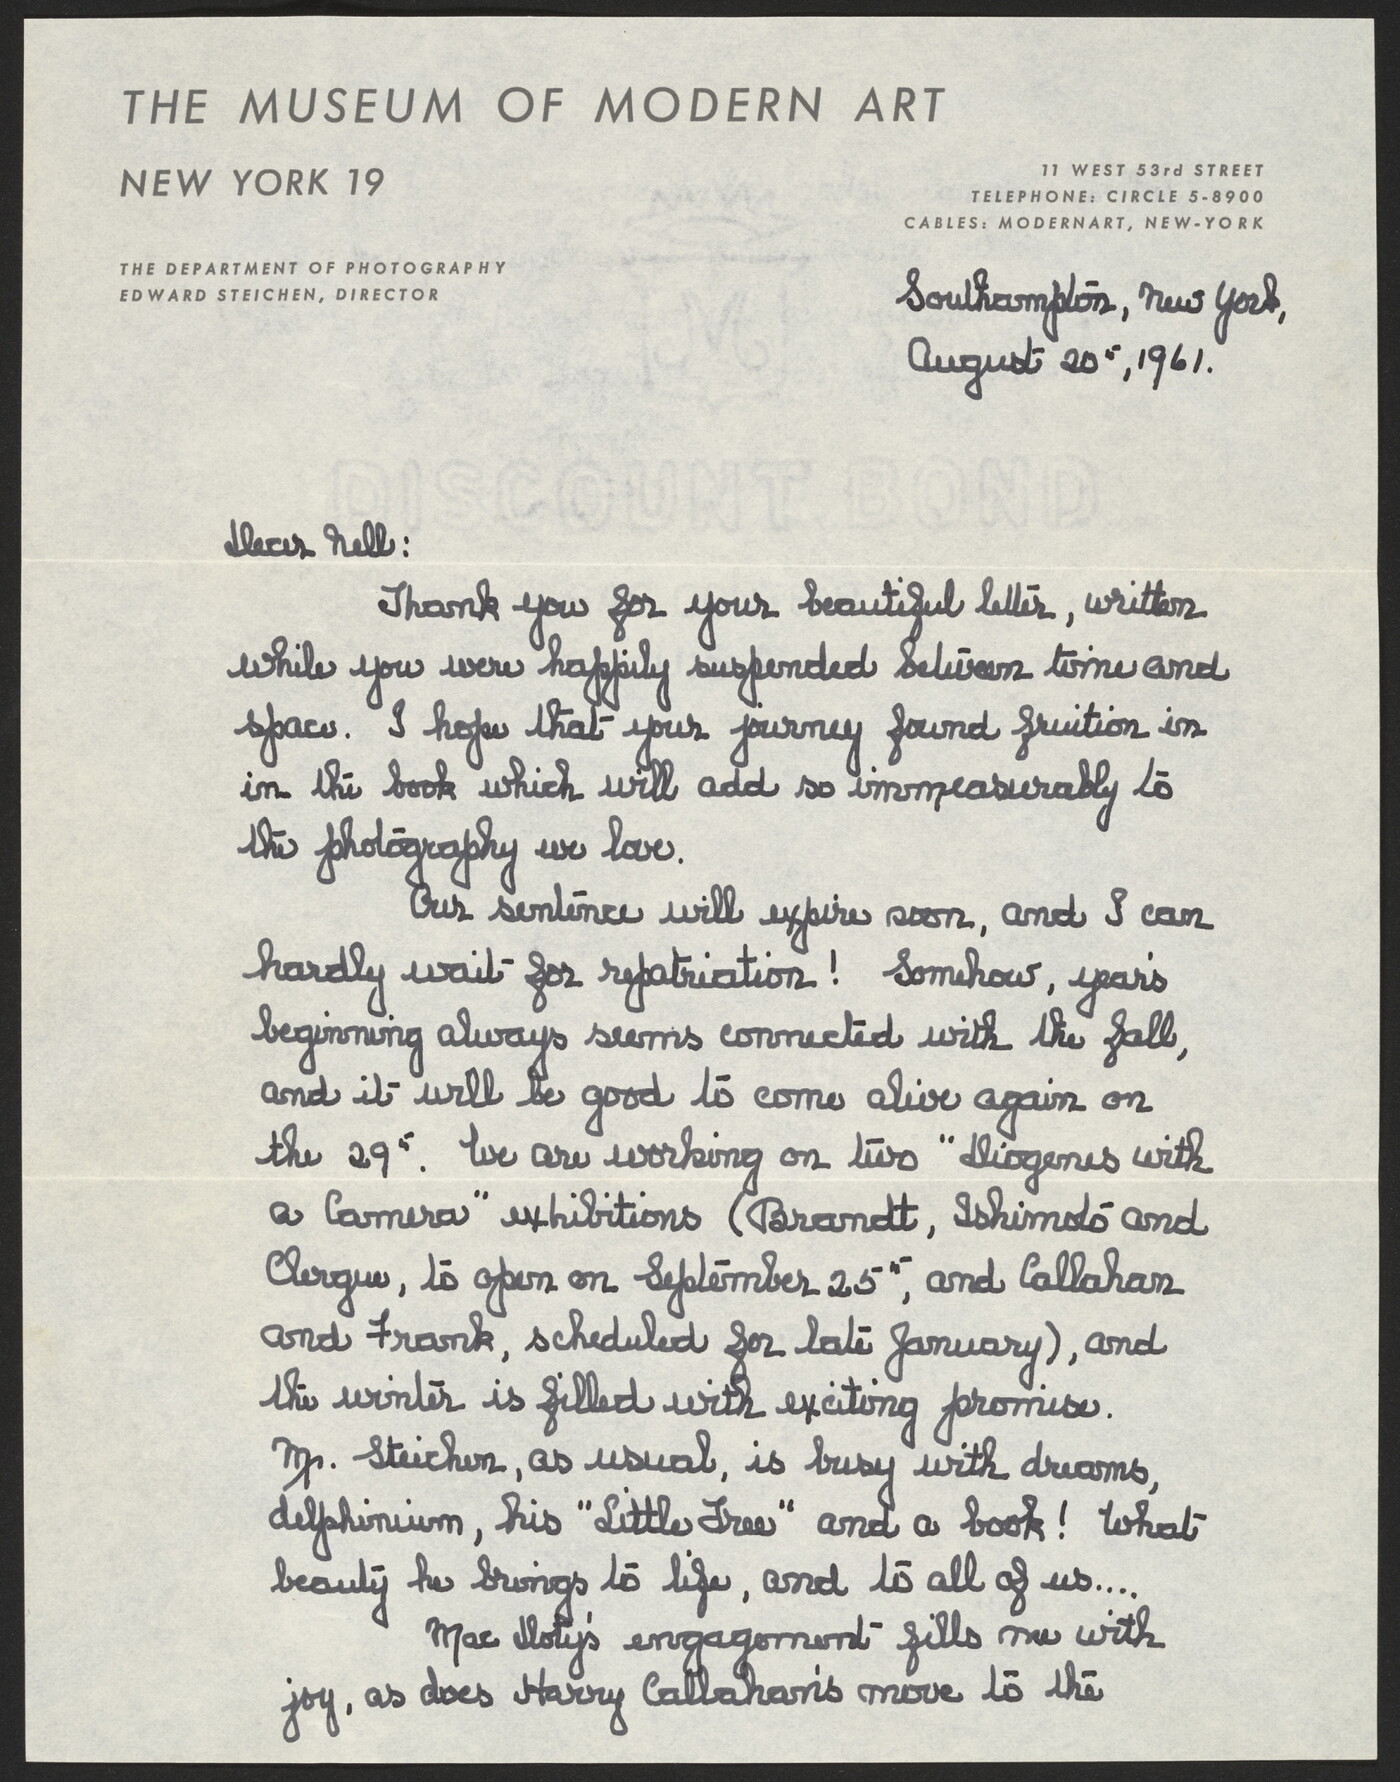 THE MUSEUM OF MODERN ART
NEW YORK 19
11 WEST 53rd STREET
TELEPHONE: CIRCLE 5-8900
CABLES: MODERNART, NEW-YORK
THE DEPARTMENT OF PHOTOGRAPHY
EDWARD STEICHEN, DIRECTOR
Southampton, New York,
August 20th, 1961.
DISCOUNT BOND
Dear Nell:
Thank you for your beautiful letter, written
while you were happily suspended between time and
space. I hope that your journey found fruition in
in the book which will add so immeasurably to
the photography we love.
Our sentence will expire soon, and I can
hardly wait for repatriation! Somehow, year's
beginning always seems connected with the fall,
and it will be good to come alive again on
the 29th. We are working on two "Diogenes with
a Camera" exhibitions (Brandt, Ishimoto and
Clergue, to open on September 25th, and Callahan
and Frank, scheduled for late January), and
the winter is filled with exciting promise.
Mr. Steichen, as usual, is busy with dreams,
delphinium, his "Little Tree" and a book! What
beauty he brings to life, and to all of us....
Mac Doty's engagement fills me with
joy, as does Harry Callahan's move to the